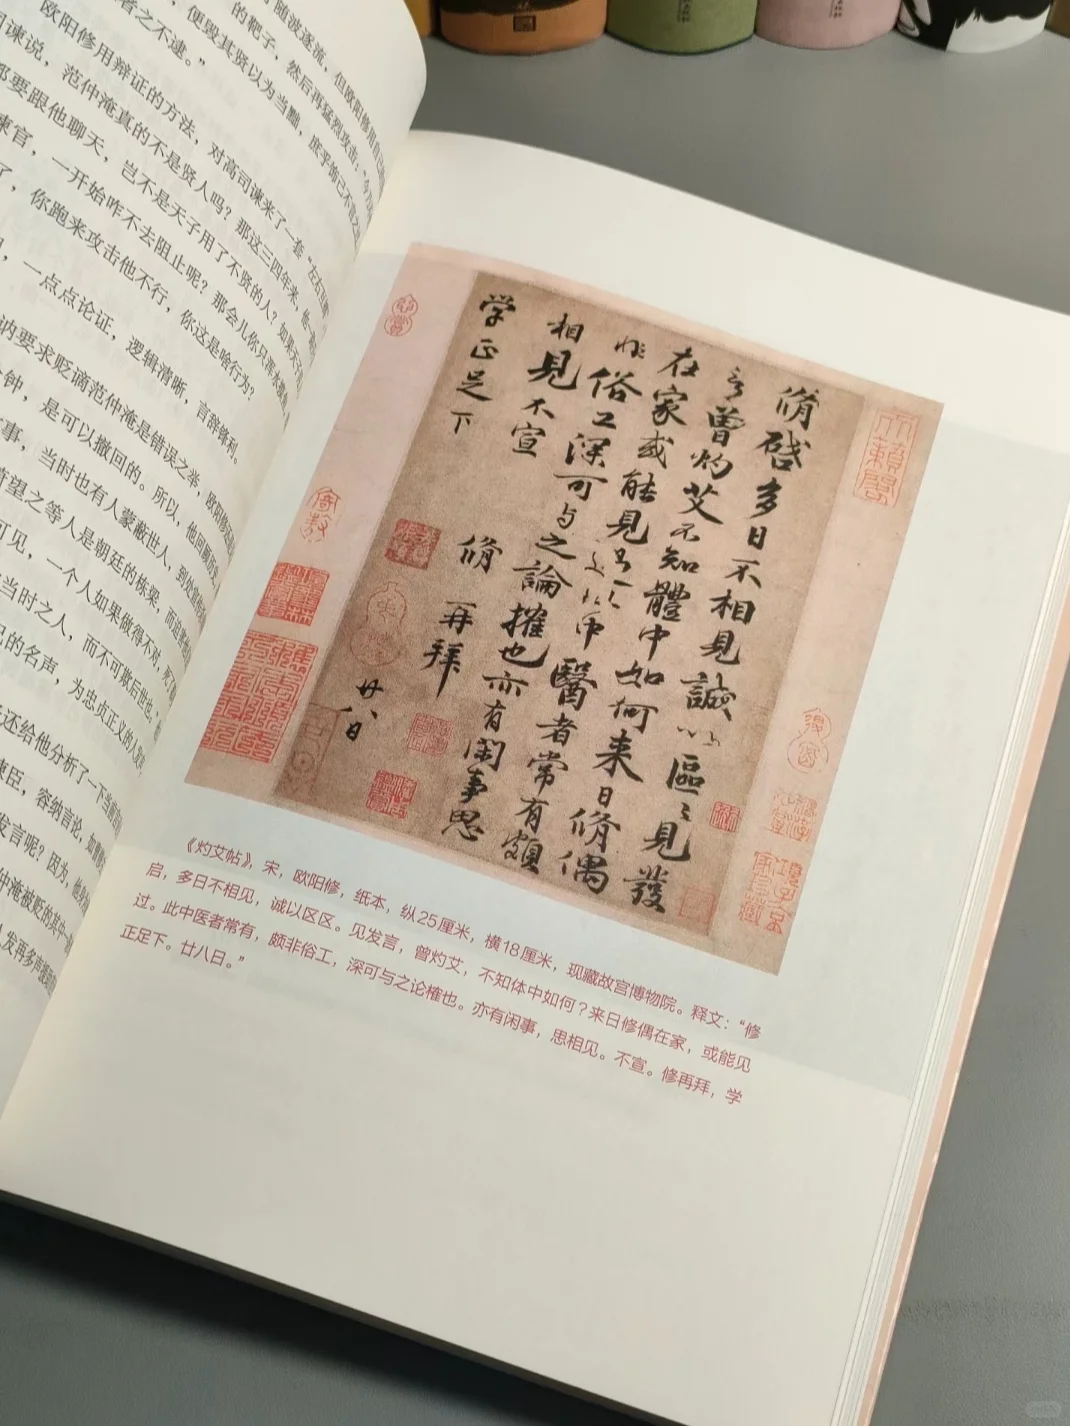 了随波逐流，但欧阳修用自己
的靶子，然后再猛烈攻击：“今乃
，便毁其贤以为当黜，庶乎饰己不言之
者之不逮。”
欧阳修用辩证的方法，对高司谏来了一套“左右
司谏说，范仲淹真的不是贤人吗？那这三四年来，他一
都要跟他聊天，岂不是天子用了不贤的人？如果不
谏官，一开始咋不去阻止呢？那会儿你只
了，你跑来攻击他不行，你这是啥行为？
，一点点论证，逻辑清晰，言辞锋利。
讷要求贬谪范仲淹是错误之举，欧阳修
钟，是可以撤回的。所以，他回顾历史
事，当时也有人蒙蔽世人，到处宣传
望之等人是朝廷的栋梁，而迫害
可见，一个人如果做得不对，
当时之人，而不可欺后世也。
的名声，为忠贞正义的人发
还给他分析了一下当前
谏臣，容纳言论，如
发言呢？因为，他
仲淹被贬的其中一
人发再多声
脩啓多日不相見誠以區區見發
言曾灼艾不知體中如何来日脩偶
在家或能見過此中醫者常有頗
非俗工深可与之論搉也亦有閑事思
相見不宣 脩再拜
学正足下 廿八日
《灼艾帖》，宋，欧阳修，纸本，纵25厘米，横18厘米，现藏故宫博物院。释文：“修
启，多日不相见，诚以区区。见发言，曾灼艾，不知体中如何？来日修偶在家，或能见
过。此中医者常有，颇非俗工，深可与之论榷也。亦有闲事，思相见。不宣。修再拜，学
正足下。廿八日。”